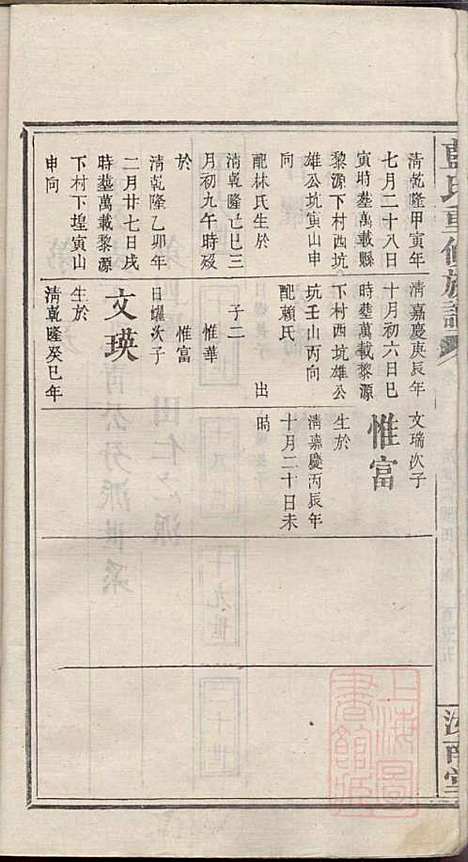 藍氏重修族譜
汝南堂
清乾隆甲寅年
七月二十八日
寅時塟萬載縣
黎源下村西坑
雄公坑寅山申
向
配林氏生於
清乾隆己巳三
月初九午時歿
於
清乾隆乙卯年
二月廿七日戌
時塟萬載黎源
下村下埕寅山
申向
清嘉慶庚辰年
十月初六日巳
時塟萬載黎源
下村西坑雄公
坑壬山丙向
配賴氏 出
子二
惟華
惟富
日耀次子
文瑛
生於
清乾隆癸巳年
文瑞次子
惟富
生於
清嘉慶丙辰年
十月二十日未
時
上海圖書館藏